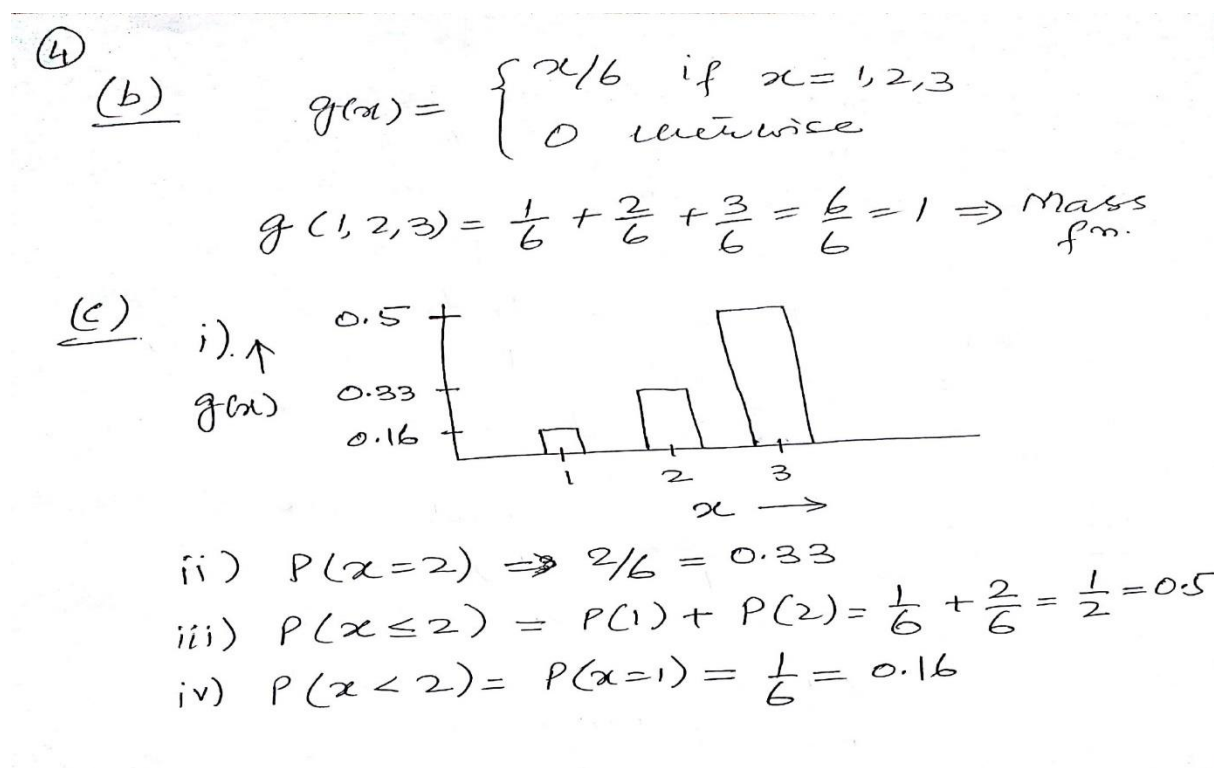 ④
(b) g(x) = { x/6 if x = 1, 2, 3
0 otherwise
g (1, 2, 3) = 1/6 + 2/6 + 3/6 = 6/6 = 1 ⇒ Mass fn.
(c) i). ↑
g(x)
0.5
0.33
0.16
1 2 3
x →
ii) P(x=2) ⇒ 2/6 = 0.33
iii) P(x≤2) = P(1) + P(2) = 1/6 + 2/6 = 1/2 = 0.5
iv) P(x<2) = P(x=1) = 1/6 = 0.16